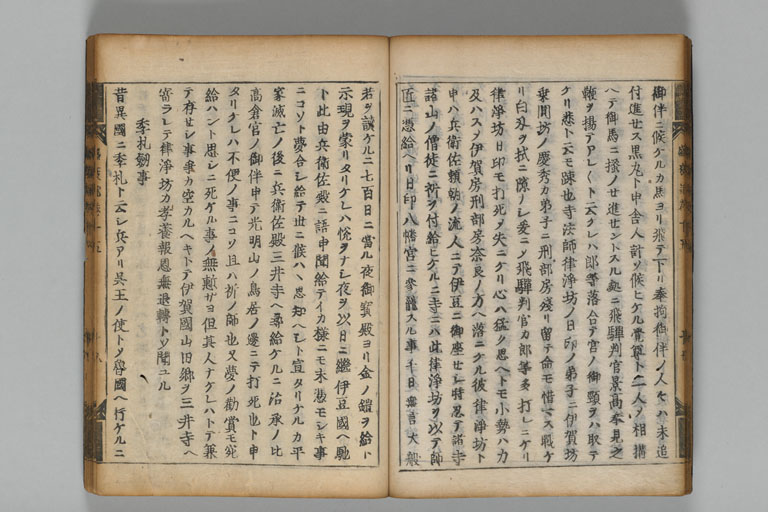 御伴ニ候ケルカ馬ヨリ飛テ下リ奉拘御伴ノ人々ハ未追
付進セス黒丸ト申舎人計ソ候ヒケル覺尊ト二人シテ相構
ヘテ御馬ニ掻ノセ進セントスル処ニ飛騨判官景高奉見之
鞭ヲ揚テアレ〱ト云ケレハ郎等落合テ宮ノ御頸ヲハ取テ
ケリ悲ト云モ疎也寺法師律浄坊ノ日印ノ弟子ニ伊賀坊
乗圓坊ノ慶秀カ弟子ニ刑部房残リ留テ命モ惜マス戰ケ
リ白刃ヲ拭ニ隙ノレ爰ニシテ飛騨判官カ郎等多打レニケリ
律浄坊日印モ打死シ失ニケリ心ハ猛ク思ヘトモ小勢ハカ
及ハスシテ伊賀房刑部房奈良ノ方ヘ落ニケル彼律浄坊ト
申ハ兵衛佐頼朝ノ流人ニテ伊豆ニ御座セシ特忍テ諸寺
諸山ノ僧徒ニ祈ヲ付給ヒケルニ寺ニハ此律浄坊ヲ以テ師
匠ニ憑給ヘリ日印八幡宮ニ参籠スル事千日無言大般
若ヲ讀ケルニ七百日ニ當ル夜御寳殿ヨリ金ノ鎧ヲ給ト
示現ヲ蒙リタリケレハ悦ヲナシ夜ヲ以日ニ継伊豆國ヘ馳
下此由兵衛佐殿ニ語申聞給テイカ様ニモ末憑モシキ事
ニコソト夢合シ給テ世ニ候ハヽ思知ヘシト宣タリケルカ平
家滅亡ノ後ニ兵衛佐殿三井寺ヘ尋給ケルニ治承ノ比
高倉宮ノ御伴申テ光明山ノ鳥居ノ邊ニテ打死也ト申
タリケレハ不便ノ事ニコソ且ハ祈ノ師也又夢ノ勧賞モ宛
給ハント思シニ死ケル事ノ無慙サヨ但其人ナケレハトテ兼
テ存セシ事無カ空カルヘキトテ伊賀國山田郷ヲ三井寺ヘ
寄ラレテ律浄坊カ孝養報恩無退轉トソ聞ユル
季札剱事
昔異國ニ季札ト云シ兵アリ呉王ノ使トシテ魯國ヘ行ケルニ